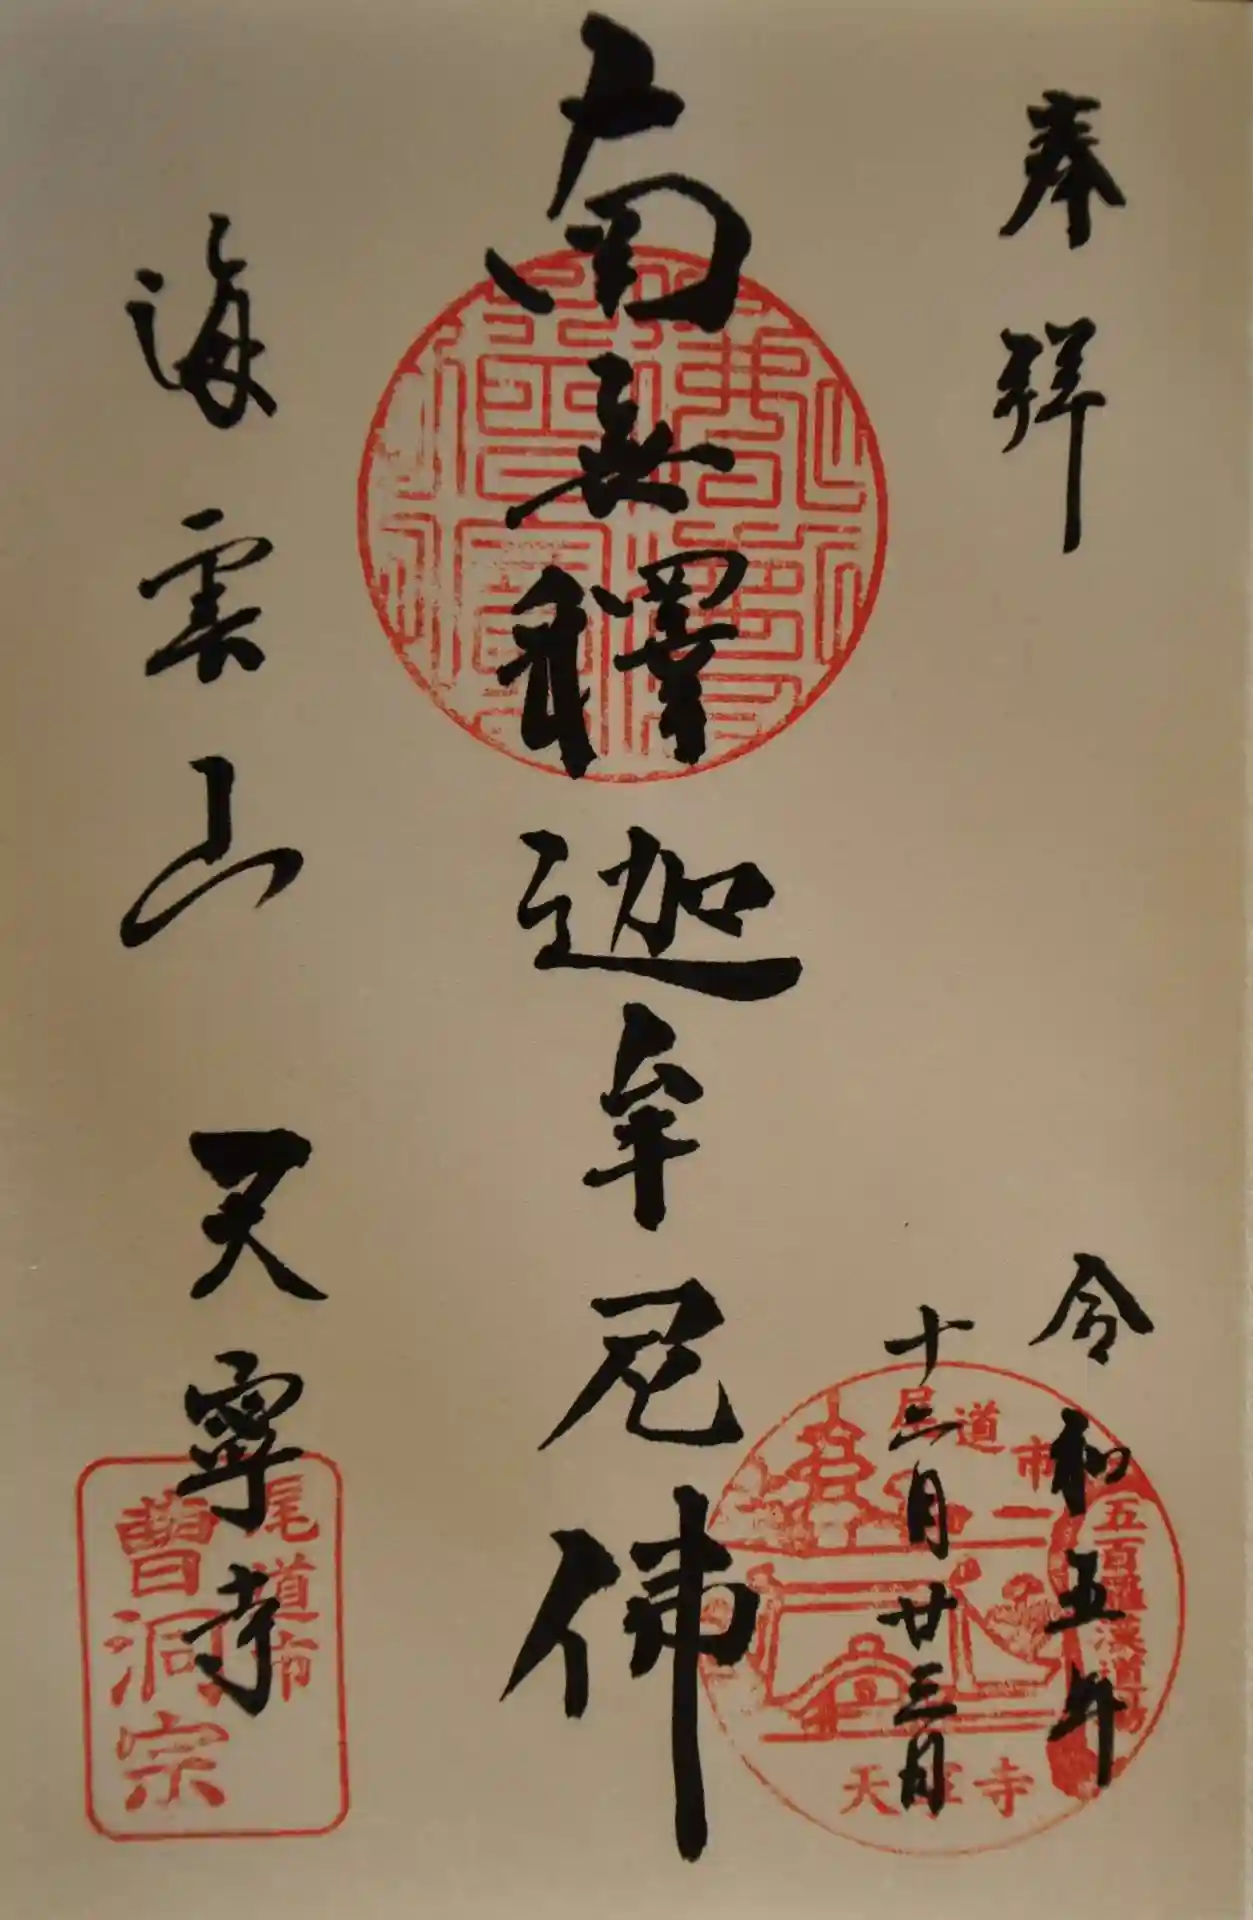 奉拝
令和五年
十二月廿三日
南無釋迦牟尼佛
海雲山 天寧寺
尾道市
五百羅漢道場
天寧寺
尾道市
曹洞宗